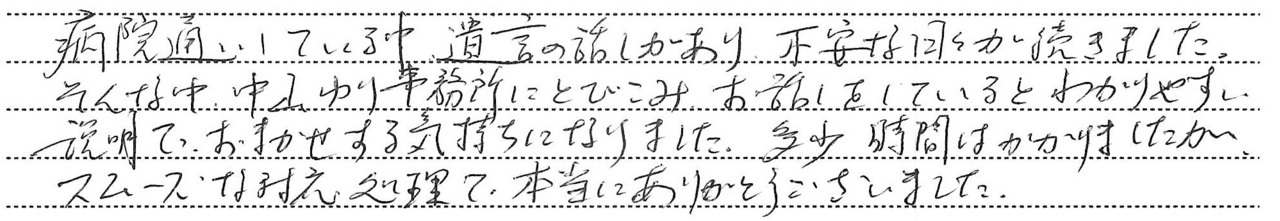 病院通いしている中、遺言の話しがあり、不安な日々が続きました。
そんな中、中山ゆり事務所にとびこみ、お話しをしているとわかりやすい
説明で、おまかせする気持ちになりました。多少時間はかかりましたが、
スムーズな対応、処理で、本当にありがとうございました。